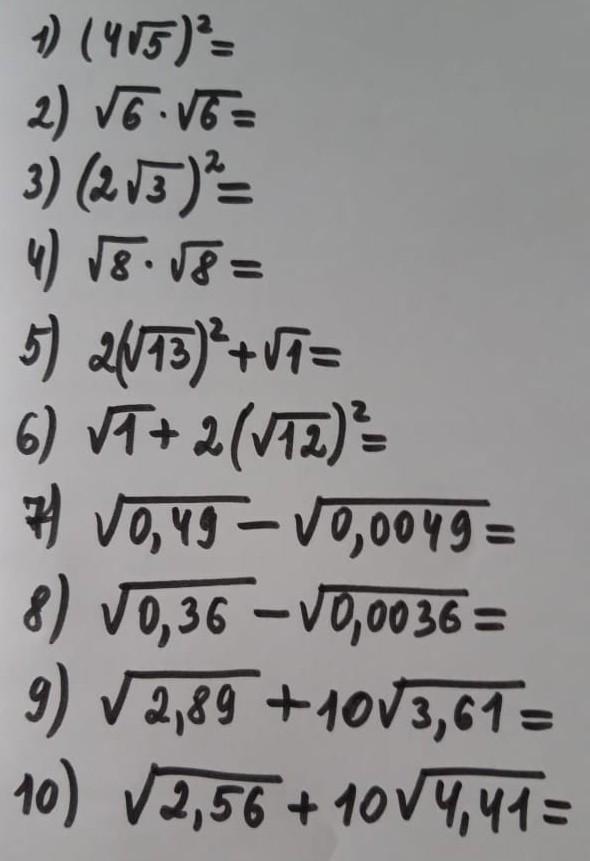 1) (4√5)²=
2) √6·√6=
3) (2√3)²=
4) √8·√8=
5) 2(√13)²+√1=
6) √1+2(√12)²=
7) √0,49-√0,0049=
8) √0,36-√0,0036=
9) √2,89+10√3,61=
10) √2,56+10√4,41=